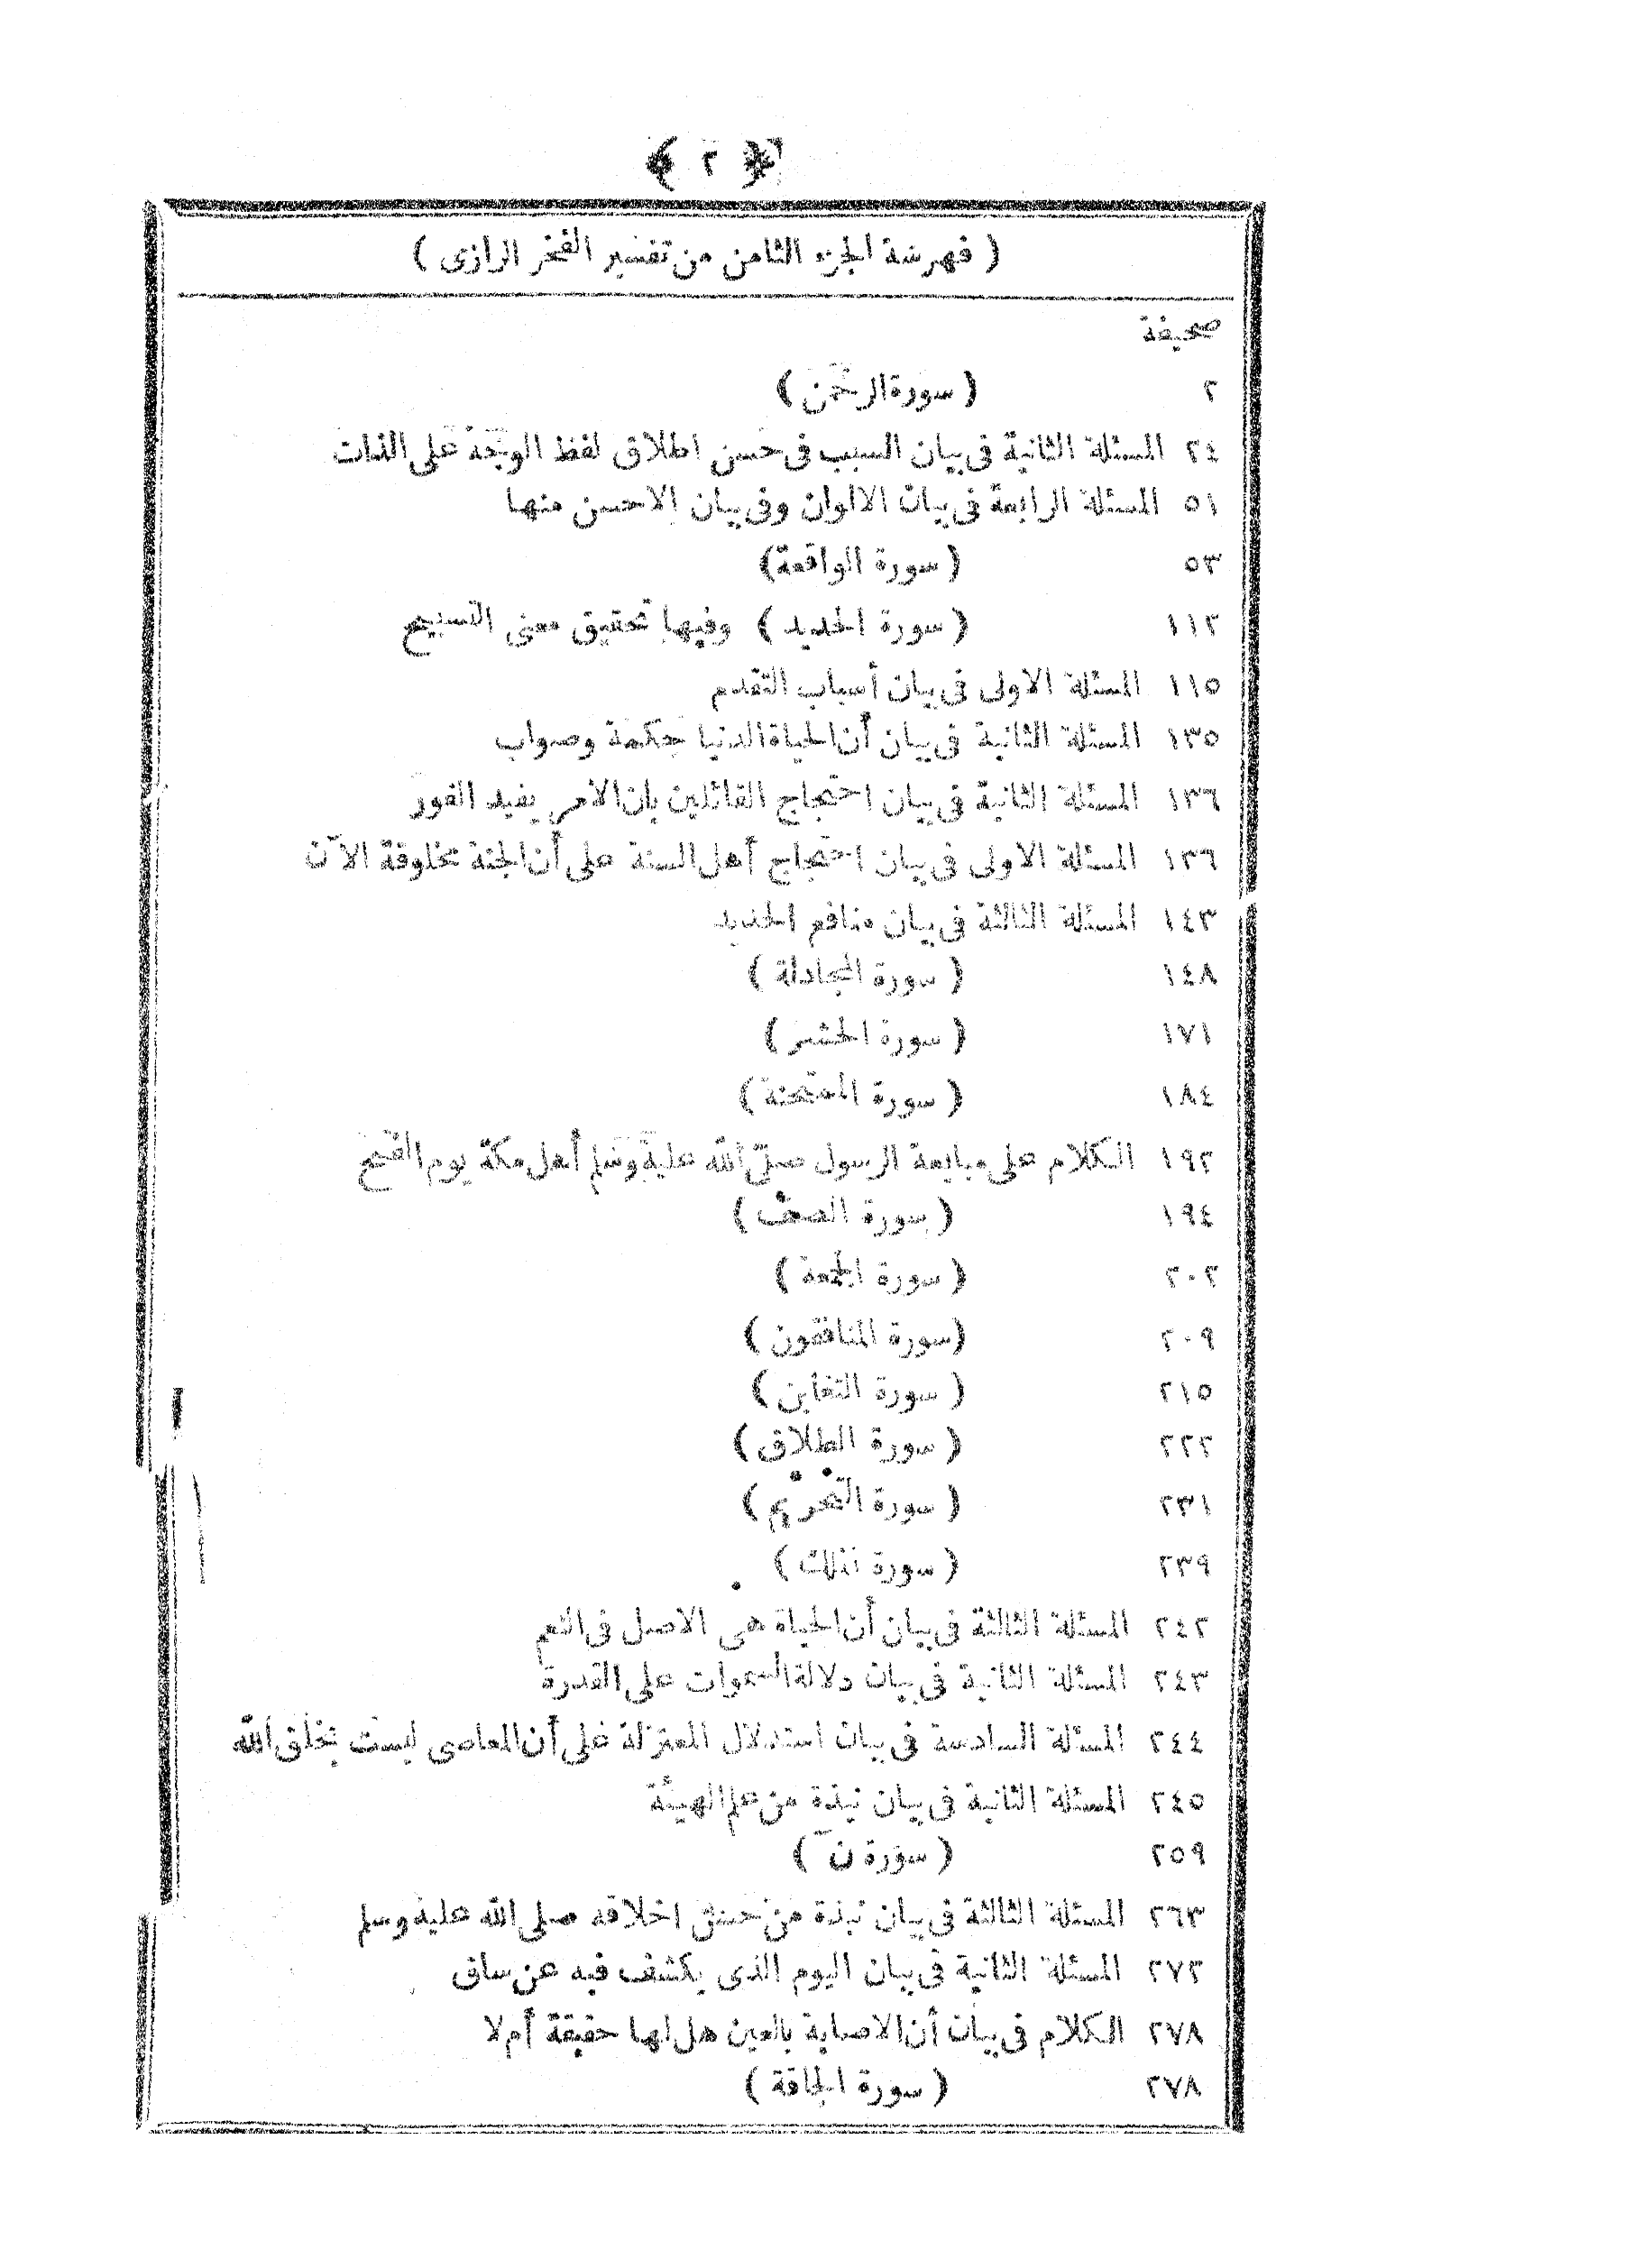 ﴿ ٢ ﴾
( فهرسة الجزء الثامن من تفسير الفخر الرازى )
صحيفة
٢ ( سورة الرحمن )
٢٤ المسئلة الثانية فى بيان السبب فى حسن اطلاق لفظ الوجه على الذات
٥١ المسئلة الرابعة فى بيان الالوان وفى بيان الاحسن منها
٥٣ ( سورة الواقعة )
١١٢ ( سورة الحديد ) وفيها تحقيق معنى التسبيح
١١٥ المسئلة الاولى فى بيان أسباب التقدم
١٣٥ المسئلة الثانية فى بيان أن الحياة الدنيا حكمة وصواب
١٣٦ المسئلة الثانية فى بيان احتجاج القائلين بان الامر يفيد الفور
١٣٦ المسئلة الاولى فى بيان احتجاج أهل السنة على أن الجنة مخلوقة الآن
١٤٣ المسئلة الثالثة فى بيان منافع الحديد
١٤٨ ( سورة المجادلة )
١٧١ ( سورة الحشر )
١٨٤ ( سورة الممتحنة )
١٩٢ الكلام على مبايعة الرسول صلى الله عليه وسلم أهل مكة يوم الفتح
١٩٤ ( سورة الصف )
٢٠٢ ( سورة الجمعة )
٢٠٩ ( سورة المنافقون )
٢١٥ ( سورة التغابن )
٢٢٢ ( سورة الطلاق )
٢٣١ ( سورة التحريم )
٢٣٩ ( سورة الملك )
٢٤٢ المسئلة الثالثة فى بيان أن الحياة هى الاصل فى النعم
٢٤٣ المسئلة الثانية فى بيان دلالة السموات على القدرة
٢٤٤ المسئلة السادسة فى بيان استدلال المعتزلة على أن المعاصى ليست بخلق الله
٢٤٥ المسئلة الثانية فى بيان نبذة من علم الهيئة
٢٥٩ ( سورة نٓ )
٢٦٣ المسئلة الثالثة فى بيان نبذة من حسن اخلاقه صلى الله عليه وسلم
٢٧٢ المسئلة الثانية فى بيان اليوم الذى يكشف فيه عن ساق
٢٧٨ الكلام فى بيان أن الاصابة بالعين هل لها حقيقة أم لا
٢٧٨ ( سورة الحاقة )